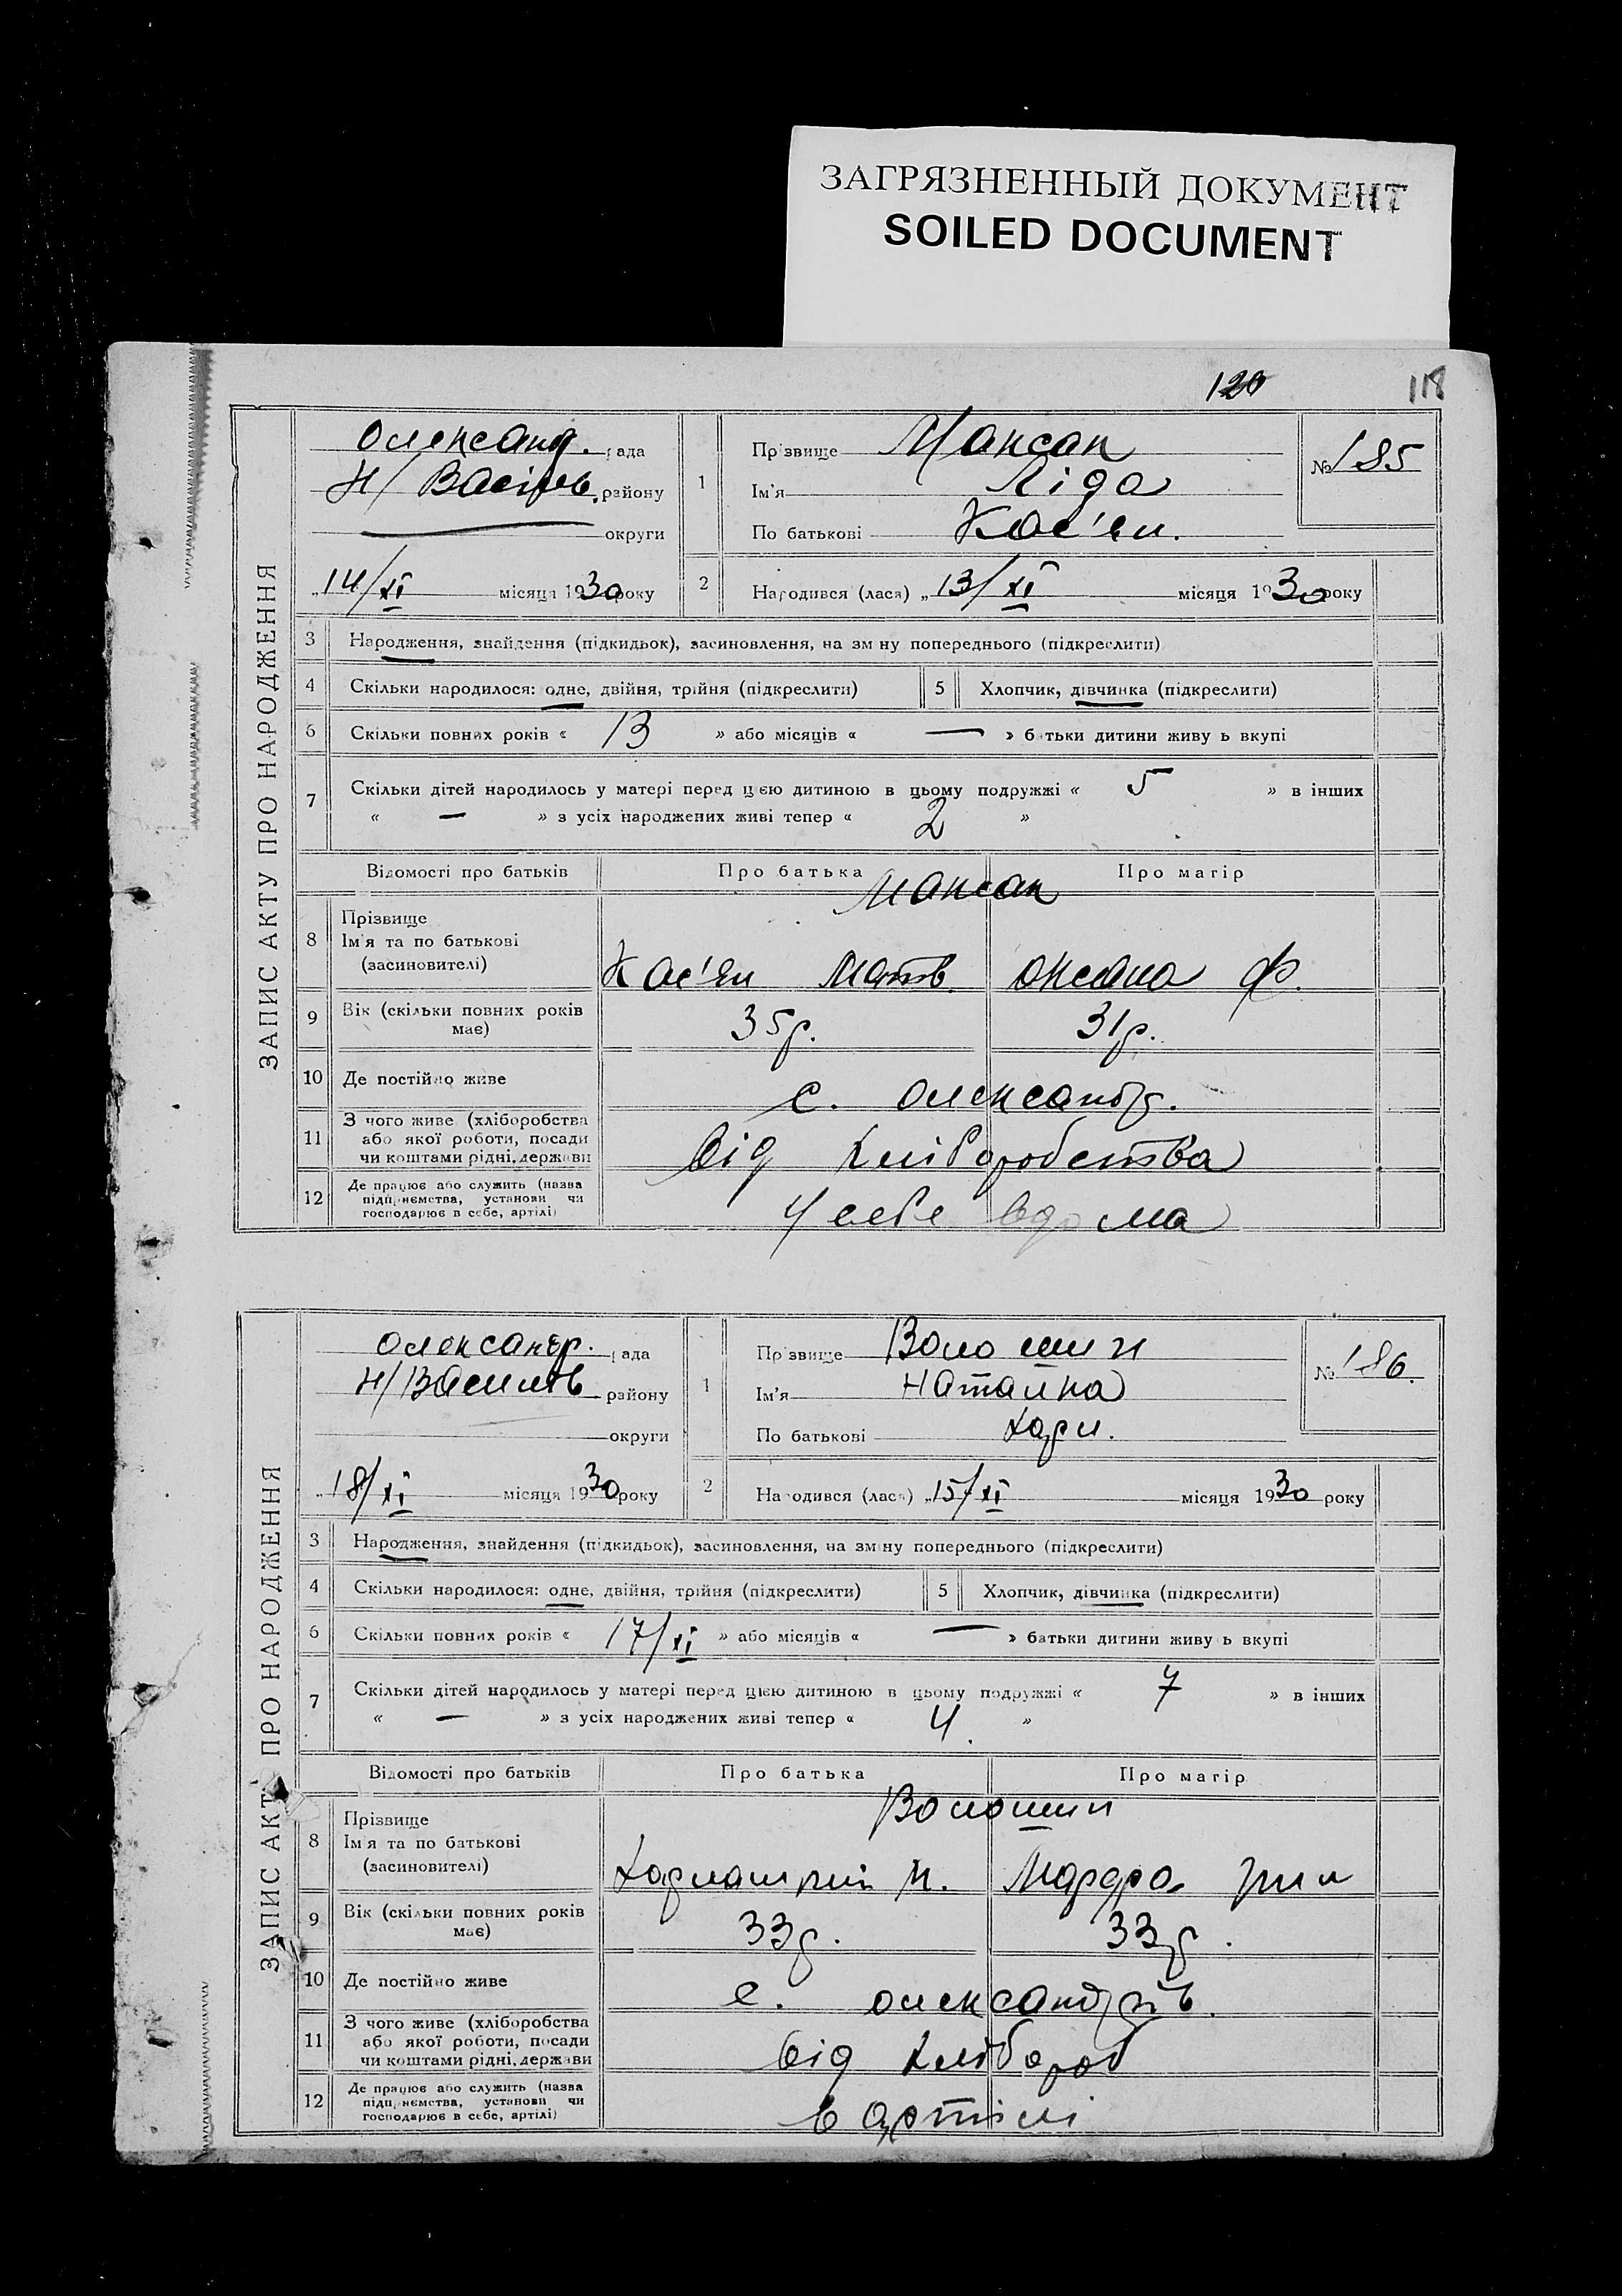 ЗАГРЯЗНЕННЫЙ ДОКУМЕНТ
SOILED DOCUMENT
120 118
ЗАПИС АКТУ ПРО НАРОДЖЕННЯ
Олександ. рада
Н/ Васільв. району
округи
„14/XI місяця 1930 року
1 Прізвище Мансап
Ім'я Ліда
По батькові Кас'ян.
№ 185
2 Народився (лася) „13/XI місяця 1930 року
3 Народження, знайдення (підкидьок), засиновлення, на зміну попереднього (підкреслити)
4 Скільки народилося: одне, двійня, трійня (підкреслити) 5 Хлопчик, дівчинка (підкреслити)
6 Скільки повних років « 13 » або місяців « — » батьки дитини живуть вкупі
7 Скільки дітей народилось у матері перед цією дитиною в цьому подружжі « 5 » в інших
« — » з усіх народжених живі тепер « 2 »
Відомості про батьків Про батька Про матір
Мансап
8 Прізвище
Ім'я та по батькові
(засиновителі)
Кас'ян Матв. Оксана Ф.
9 Вік (скільки повних років
має)
35 р. 31 р.
10 Де постійно живе с. Олександр.
11 З чого живе (хліборобства
або якої роботи, посади
чи коштами рідні, держави
від хліборобства
12 Де працює або служить (назва
підприємства, установи чи
господарює в себе, артілі)
У себе вдома
ЗАПИС АКТУ ПРО НАРОДЖЕННЯ
Олександр. рада
Н/Василів району
округи
„18/XI місяця 1930 року
1 Прізвище Волошин
Ім'я Наталка
По батькові Харл.
№ 186.
2 Народився (лася) „15/XI місяця 1930 року
3 Народження, знайдення (підкидьок), засиновлення, на зміну попереднього (підкреслити)
4 Скільки народилося: одне, двійня, трійня (підкреслити) 5 Хлопчик, дівчинка (підкреслити)
6 Скільки повних років « 17/XI » або місяців « — » батьки дитини живуть вкупі
7 Скільки дітей народилось у матері перед цією дитиною в цьому подружжі « 7 » в інших
« — » з усіх народжених живі тепер « 4. »
Відомості про батьків Про батька Про матір
Волошин
8 Прізвище
Ім'я та по батькові
(засиновителі)
9 Вік (скільки повних років
має)
33 р. 33 р.
10 Де постійно живе с. Олександрів.
11 З чого живе (хліборобства
або якої роботи, посади
чи коштами рідні, держави
від хлібороб
12 Де працює або служить (назва
підприємства, установи чи
господарює в себе, артілі)
в артілі